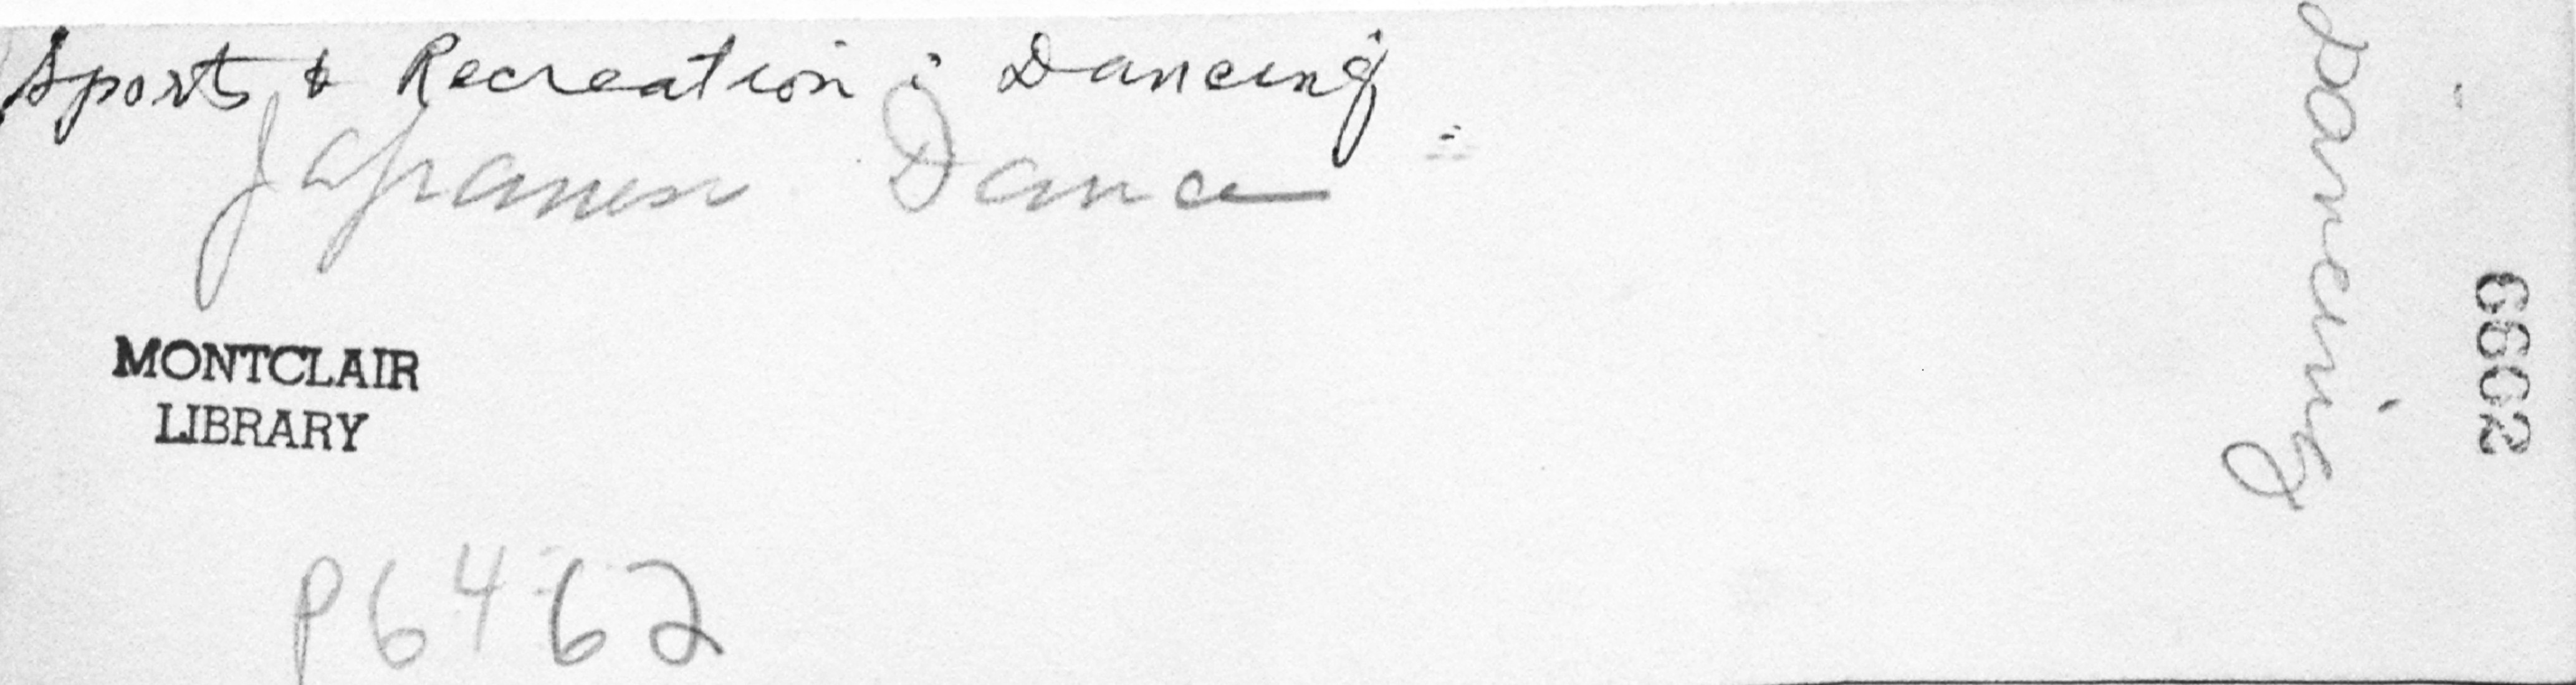 Sports & Recreation: Dancing
Japanese Dance
MONTCLAIR
LIBRARY
P6462
Dancing
6602